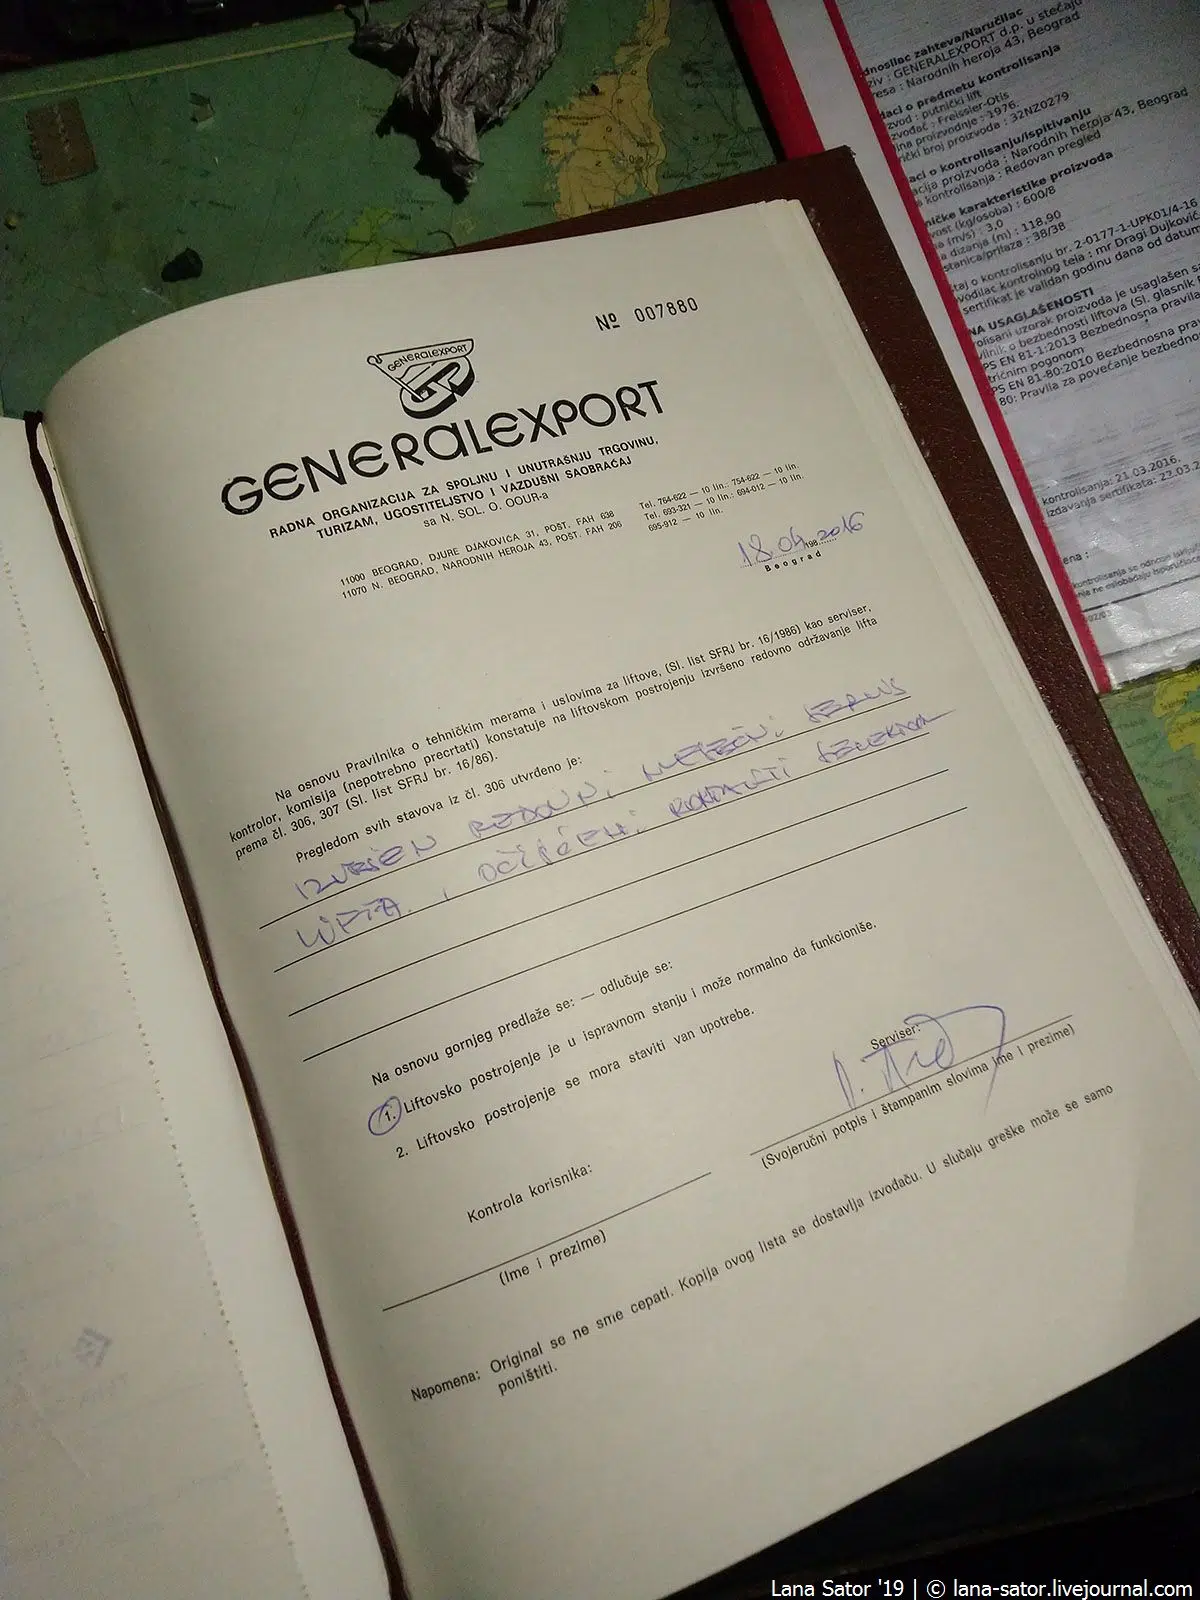 № 007880
GENERALEXPORT
GENERALEXPORT
RADNA ORGANIZACIJA ZA SPOLJNU I UNUTRAŠNJU TRGOVINU,
TURIZAM, UGOSTITELJSTVO I VAZDUŠNI SAOBRAĆAJ
sa N. SOL. O. OOUR-a
11000 BEOGRAD, DJURE DJAKOVIĆA 31, POST. FAH 638
11070 N. BEOGRAD, NARODNIH HEROJA 43, POST. FAH 206
Tel. 764-622 — 10 lin.: 754-622 — 10 lin.
Tel. 693-321 — 10 lin.: 694-012 — 10 lin.
695-912 — 10 lin.
18.04.2016
198
Beograd
Na osnovu Pravilnika o tehničkim merama i uslovima za liftove, (Sl. list SFRJ br. 16/1986) kao serviser,
kontrolor, komisija (nepotrebno precrtati) konstatuje na liftovskom postrojenju izvršeno redovno održavanje lifta
prema čl. 306, 307 (Sl. list SFRJ br. 16/86).
Pregledom svih stavova iz čl. 306 utvrđeno je:
IZVRŠEN REDOVNI MESEČNI SERVIS
LIFTA. I OČIŠĆENI KONTAKTI
Na osnovu gornjeg predlaže se: — odlučuje se:
1. Liftovsko postrojenje je u ispravnom stanju i može normalno da funkcioniše.
2. Liftovsko postrojenje se mora staviti van upotrebe.
Serviser:
(Svojeručni potpis i štampanim slovima ime i prezime)
Kontrola korisnika:
(Ime i prezime)
Napomena: Original se ne sme cepati. Kopija ovog lista se dostavlja izvođaču. U slučaju greške može se samo
poništiti.
dnosilac zahteva/Naručilac
ziv : GENERALEXPORT d.p. u stečaju
resa : Narodnih heroja 43, Beograd
daci o predmetu kontrolisanja
zvod : putnički lift
zvođač : Freissler-Otis
ina proizvodnje : 1976.
rički broj proizvoda : 32NZ0279
aci o kontrolisanju/ispitivanju
acija proizvoda : Narodnih heroja 43, Beograd
a kontrolisanja : Redovan pregled
ničke karakteristike proizvoda
vost (kg/osoba) : 600/8
a (m/s) : 3,0
a dizanja (m) : 118,90
stanica/prilaza : 38/38
taj o kontrolisanju br. 2-0177-1-UPK01/4-16
vodilac kontrolnog tela : mr Dragi Dujković
sertifikat je validan godinu dana od datum
NA USAGLAŠENOSTI
olisani uzorak proizvoda je usaglašen sa
ilnik o bezbednosti liftova (Sl. glasnik
PS EN 81-1:2013 Bezbednosna pravila
tričnim pogonom
PS EN 81-80:2010 Bezbednosna prav
80: Pravila za povećanje bezbedno
kontrolisanja: 21.03.2016.
izdavanja sertifikata: 22.03.2
ena :
02/03
Lana Sator '19 | © lana-sator.livejournal.com